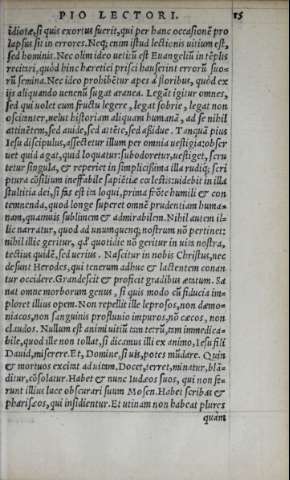 PIO LECTORI. 15
idiotæ, si quis exortus fuerit, qui per hanc occasionẽ pro
lapsus sit in errores. Neq; enim istud lectionis uitium est,
sed hominis. Nec olim ideo uetitũ est Euangeliũ in tẽplis
recitari, quòd hinc hæretici prisci hauserint errorũ suo-
rũ semina. Nec ideo prohibẽtur apes à floribus, quòd ex
ijs aliquando uenenũ sugat aranea. Legãt igitur omnes,
sed qui uolet cum fructu legere, legat sobrie, legat non
oscitanter, uelut historiam aliquam humanã, ad se nihil
attinẽtem, sed auide, sed attẽte, sed aßidue. Tanquã pius
Iesu discipulus, assectetur illum per omnia uestigia: obser
uet quid agat, quid loquatur: subodoretur, uestiget, scru
tetur singula, & reperiet in simplicissima illa rudiq; scri
ptura cõsilium ineffabile sapiẽtiæ cœlestis: uidebit in illa
stultitia dei, si fas est ita loqui, prima frõte humili & con
temnenda, quod longe superet omnẽ prudentiam huma-
nam, quamuis sublimem & admirabilem. Nihil autem il-
lic narratur, quod ad unumquenq; nostrum nõ pertinet:
nihil illic geritur, qd' quotidie nõ geritur in uita nostra,
tectius quidẽ, sed uerius. Nascitur in nobis Christus, nec
desunt Herodes, qui tenerum adhuc & lactentem conan
tur occidere. Grandescit & proficit gradibus ætatum. Sa
nat omne morborum genus, si quis modo cũ fiducia im-
ploret illius opem. Non repellit ille leprosos, non dæmo-
niacos, non sanguinis profluuio impuros, nõ cæcos, non
claudos. Nullum est animi uitiũ tam tetrũ, tam immedica-
bile, quod ille non tollat, si dicamus illi ex animo, Iesu fili
Dauid, miserere. Et, Domine, si uis, potes mũdare. Quin
& mortuos excitat ad uitam. Docet, terret, minatur, blã-
ditur, cõsolatur. Habet & nunc Iudæos suos, qui non fe-
runt illius luce obscurari suum Mosen. Habet scribas &
pharisæos, qui insidientur. Et utinam non habeat plures
quàm